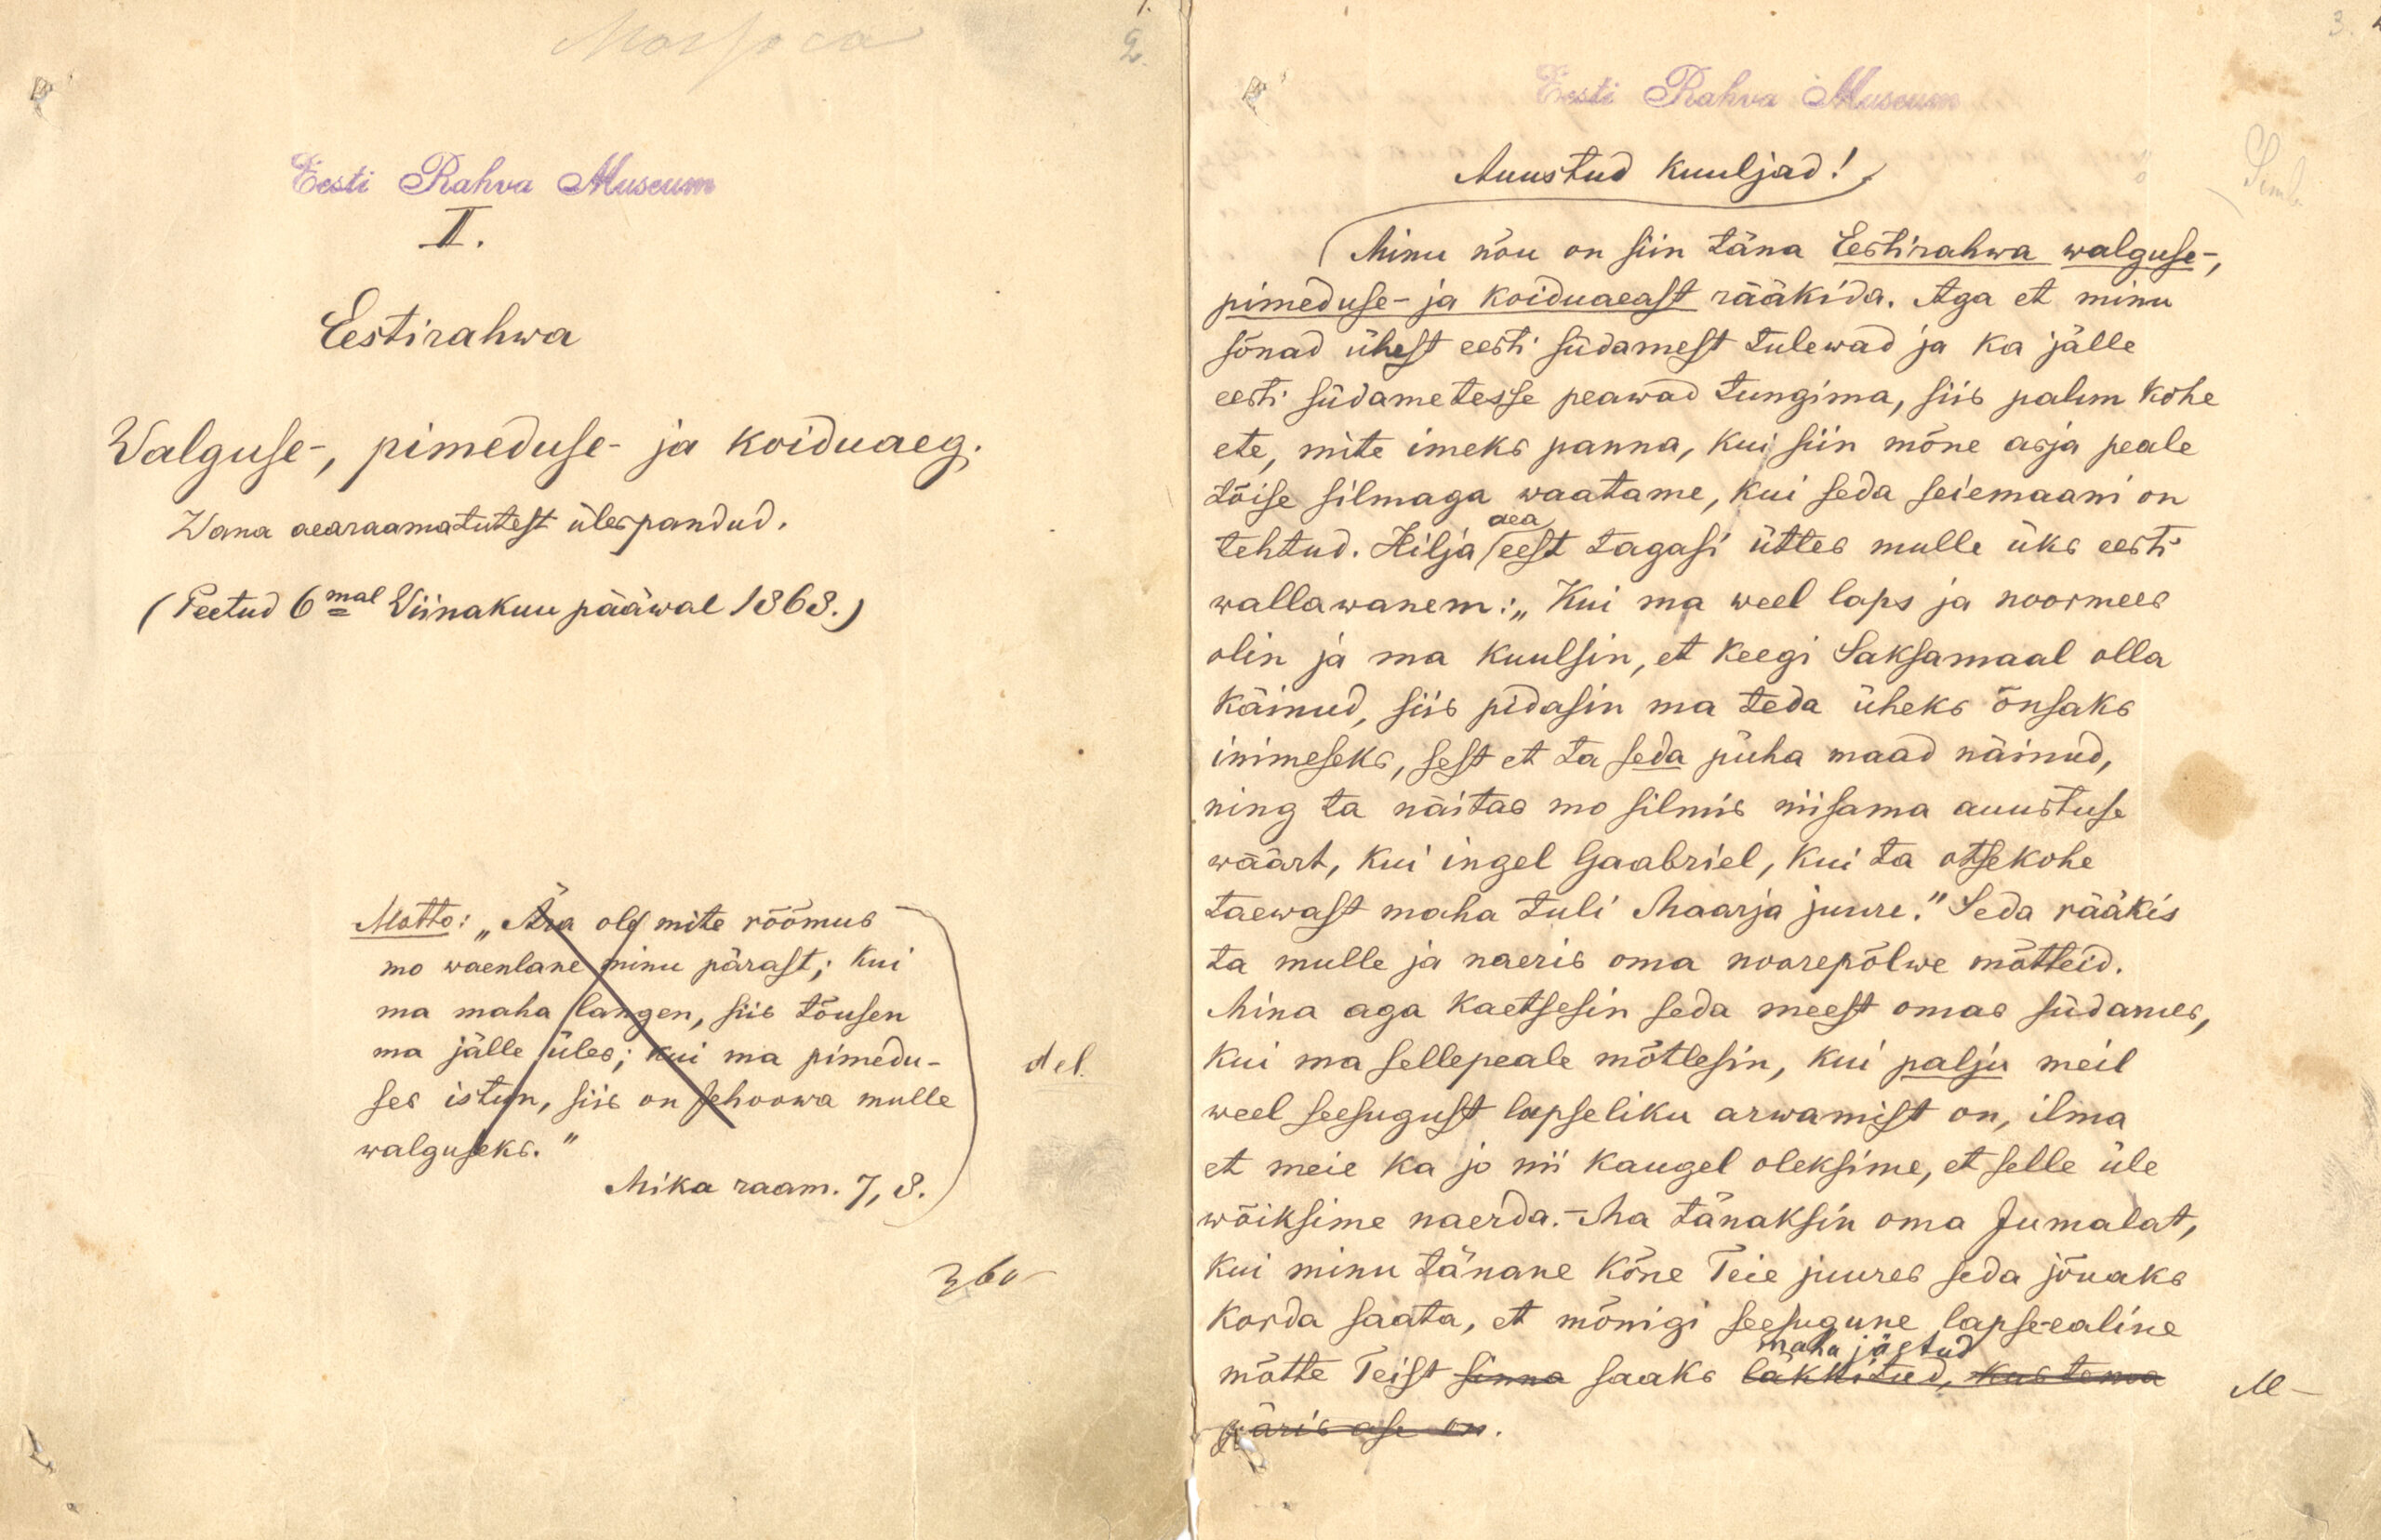 2.
Eesti Rahva Museum
II.
Eestirahwa
Walguse-, pimeduse- ja koiduaeg.
Wana aearaamatutest ülespandud.
(Peetud 6mal Viinakuu pääwal 1868.)
Motto: „Ära ole mite röömus
mo waenlane minu pärast; kui
ma maha langen, siis tõusen
ma jälle üles; kui ma pimedu-
ses istun, siis on Jehoowa mulle
walguseks."
Mika raam. 7, 8.
del.
360
3.
Eesti Rahva Museum
Auustud kuuljad!
Minu nõu on siin täna Eestirahwa walguse-,
pimeduse- ja koiduaeast rääkida. Aga et minu
sõnad ühest eesti südamest tulewad ja ka jälle
eesti südametesse peawad tungima, siis palun kohe
ete, mite imeks panna, kui siin mõne asja peale
tõise silmaga waatame, kui seda seiemaani on
tehtud. Hilja aea eest tagasi ütles mulle üks eesti
wallawanem: „Kui ma weel laps ja noormees
olin ja ma kuulsin, et keegi Saksamaal olla
käinud, siis pidasin ma teda üheks õnsaks
inimeseks, sest et ta seda püha maad näinud,
ning ta näitas mo silmis niisama auustuse
wäärt, kui ingel Gaabriel, kui ta otsekohe
taewast maha tuli Maarja juure." Seda rääkis
ta mulle ja naeris oma noorepõlwe mõtteid.
Mina aga kaetsesin seda meest omas südames,
kui ma sellepeale mõtlesin, kui palju meil
weel seesugust lapseliku arwamist on, ilma
et meie ka jo nii kaugel oleksime, et selle üle
wõiksime naerda. – Ma tänaksin oma Jumalat,
kui minu tänane kõne Teie juures seda jõuaks
korda saata, et mõnigi seesugune lapse-ealine
maha jäetud
mõtte Teist sinna saaks läkkitud, kus tema
päris ase on.
M –